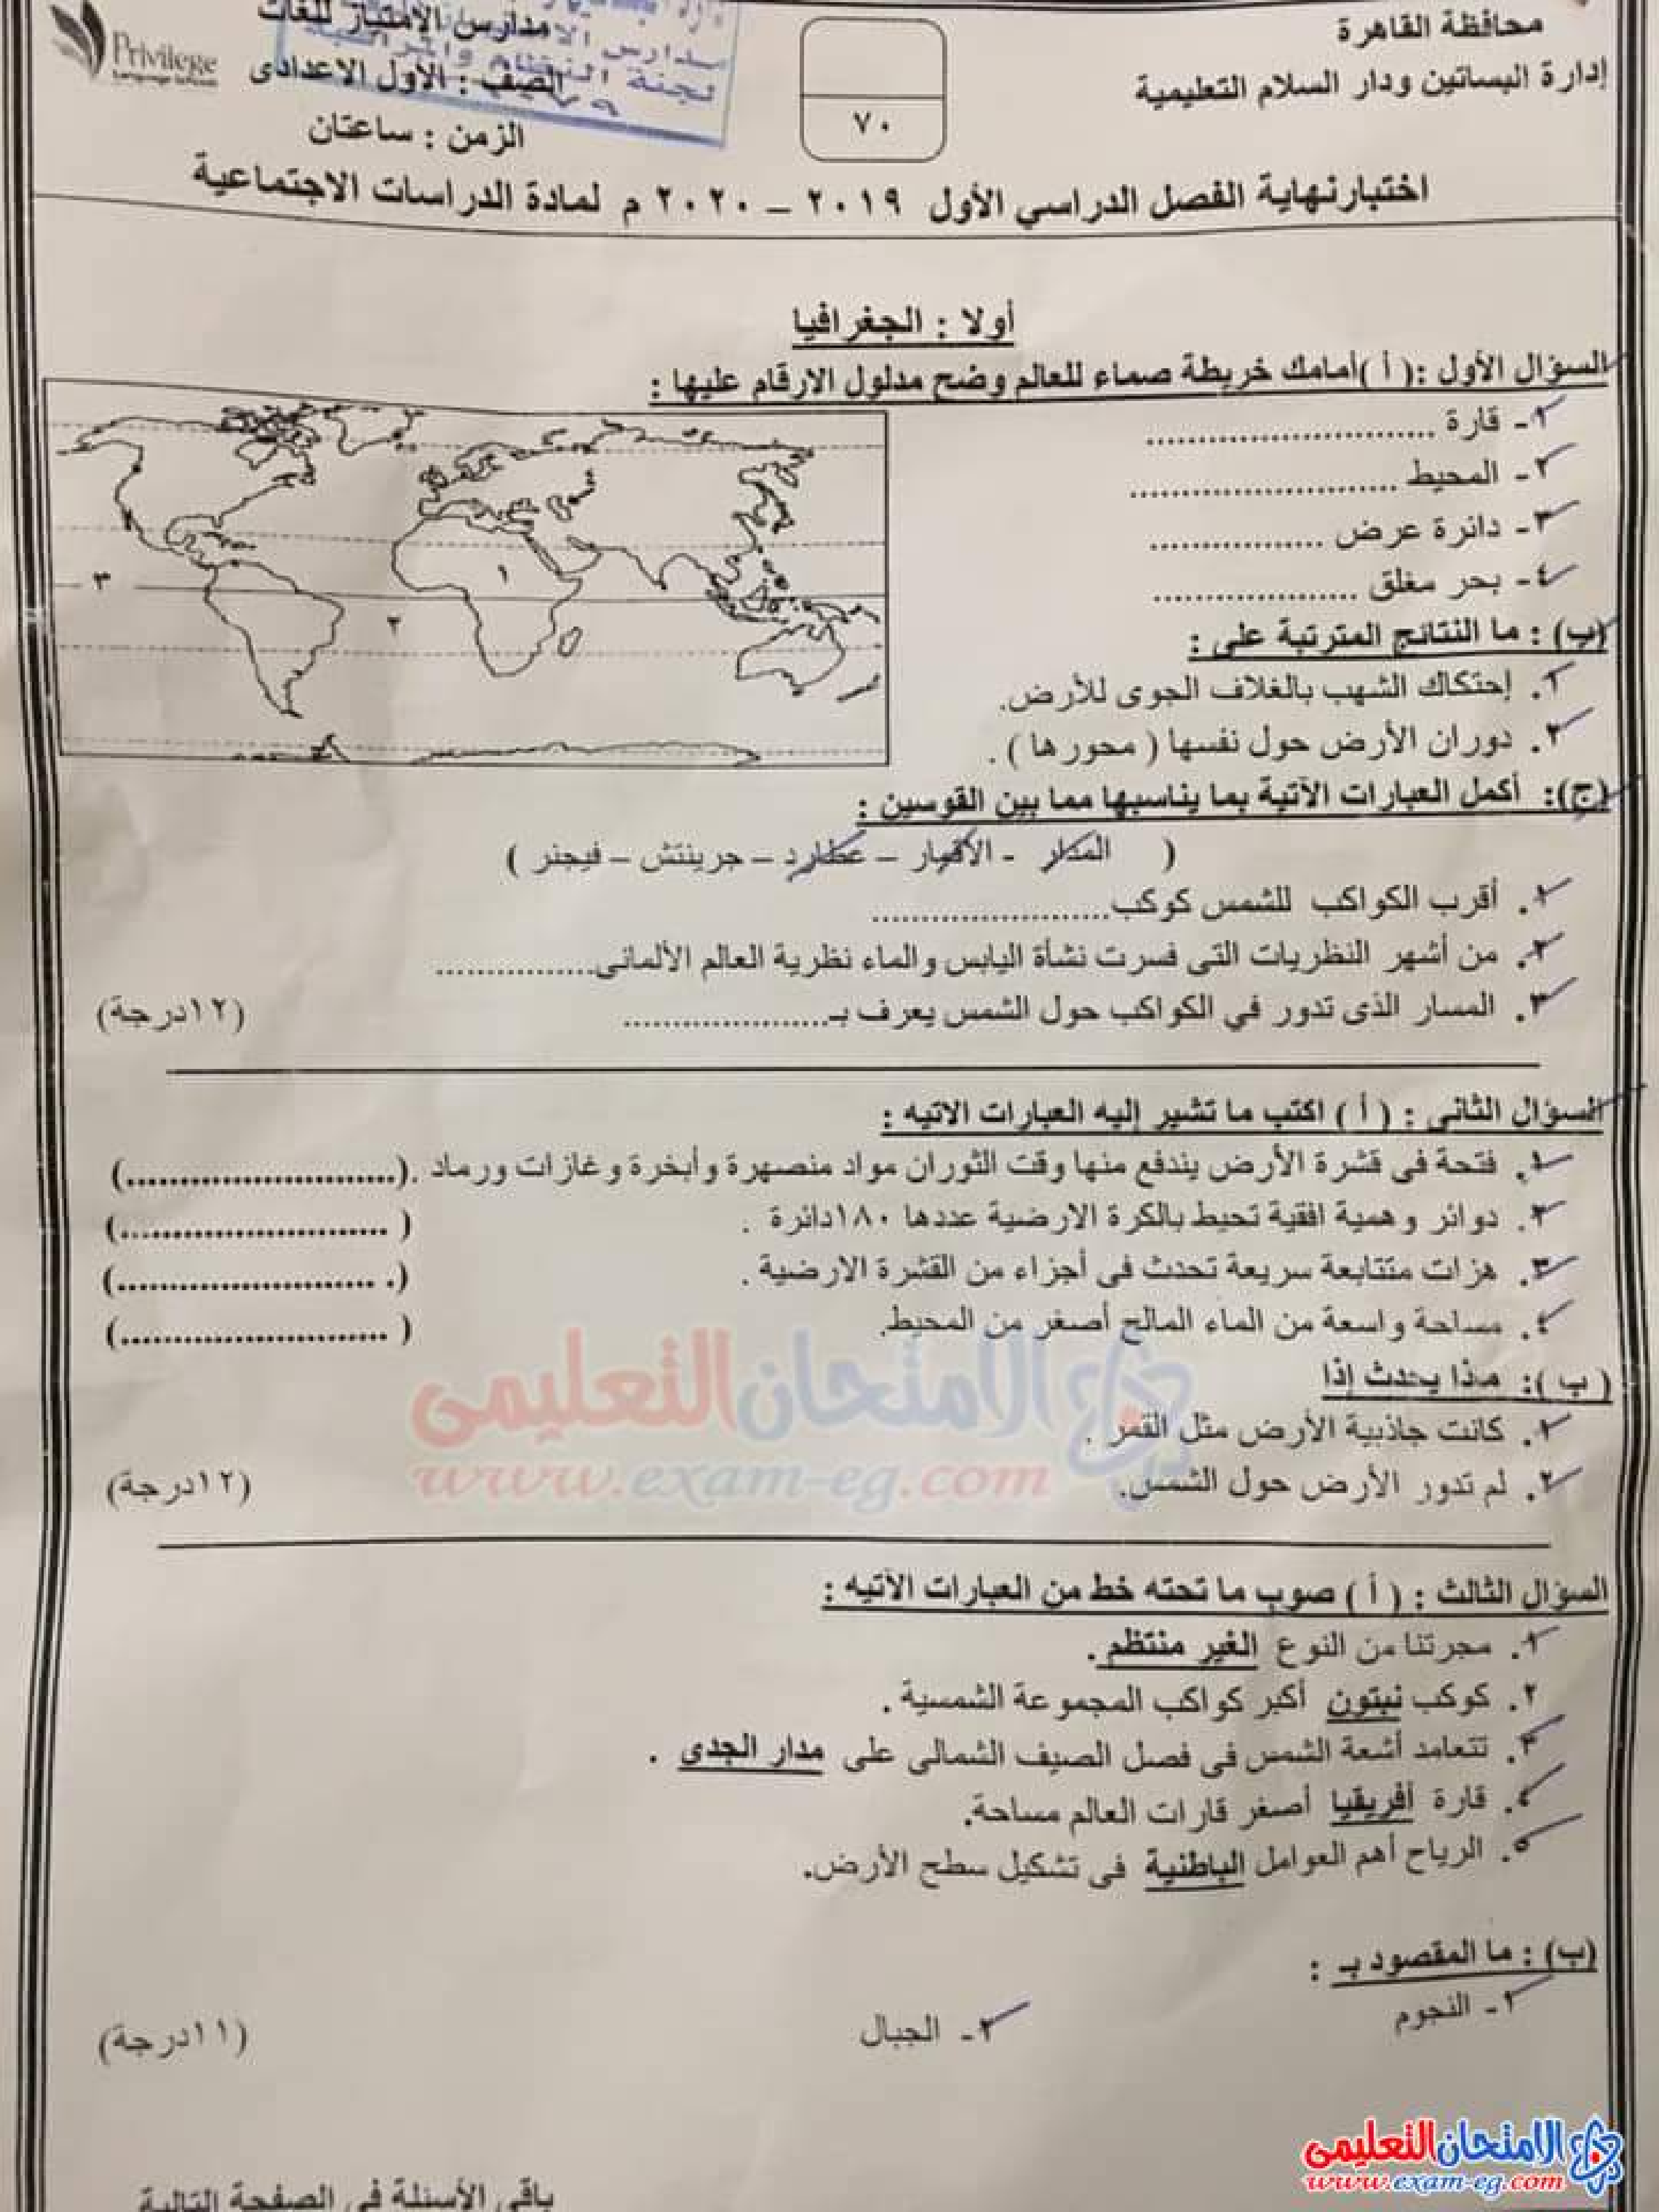 محافظة القاهرة
إدارة البساتين ودار السلام التعليمية
٧٠
مدارس الامتياز للغات
الصف : الأول الاعدادى
الزمن : ساعتان
Privilege
Language Schools
اختبارنهاية الفصل الدراسي الأول ٢٠١٩ – ٢٠٢٠ م لمادة الدراسات الاجتماعية
أولا : الجغرافيا
السؤال الأول :( أ )أمامك خريطة صماء للعالم وضح مدلول الارقام عليها :
١- قارة ............................
٢- المحيط ............................
٣- دائرة عرض ..................
٤- بحر مغلق .....................
١
٢
٣
(ب) : ما النتائج المترتبة على :
١. إحتكاك الشهب بالغلاف الجوى للأرض.
٢. دوران الأرض حول نفسها ( محورها ) .
(ج): أكمل العبارات الآتية بما يناسبها مما بين القوسين :
( المدار - الأقمار – عطارد – جرينتش – فيجنر )
١. أقرب الكواكب للشمس كوكب........................
٢. من أشهر النظريات التى فسرت نشأة اليابس والماء نظرية العالم الألمانى................
٣. المسار الذى تدور في الكواكب حول الشمس يعرف بـ.....................
(١٢درجة)
السؤال الثانى : ( أ ) اكتب ما تشير إليه العبارات الاتيه :
١. فتحة فى قشرة الأرض يندفع منها وقت الثوران مواد منصهرة وأبخرة وغازات ورماد .(.........................)
٢. دوائر وهمية افقية تحيط بالكرة الارضية عددها ١٨٠دائرة . ( .........................)
٣. هزات متتابعة سريعة تحدث فى أجزاء من القشرة الارضية . (. ........................)
٤. مساحة واسعة من الماء المالح أصغر من المحيط. ( .........................)
( ب ): ماذا يحدث إذا
١. كانت جاذبية الأرض مثل القمر .
٢. لم تدور الأرض حول الشمس.
(١٢درجة)
الامتحان التعليمى
www.exam-eg.com
السؤال الثالث : ( أ ) صوب ما تحته خط من العبارات الآتيه :
١. مجرتنا من النوع الغير منتظم .
٢. كوكب نبتون أكبر كواكب المجموعة الشمسية .
٣. تتعامد أشعة الشمس فى فصل الصيف الشمالى على مدار الجدى .
٤. قارة أفريقيا أصغر قارات العالم مساحة.
٥. الرياح أهم العوامل الباطنية فى تشكيل سطح الأرض.
(ب) : ما المقصود بـ :
١- النجوم
٢- الجبال
(١١درجة)
الامتحان التعليمى
www.exam-eg.com
باقى الأسئلة فى الصفحة التالية